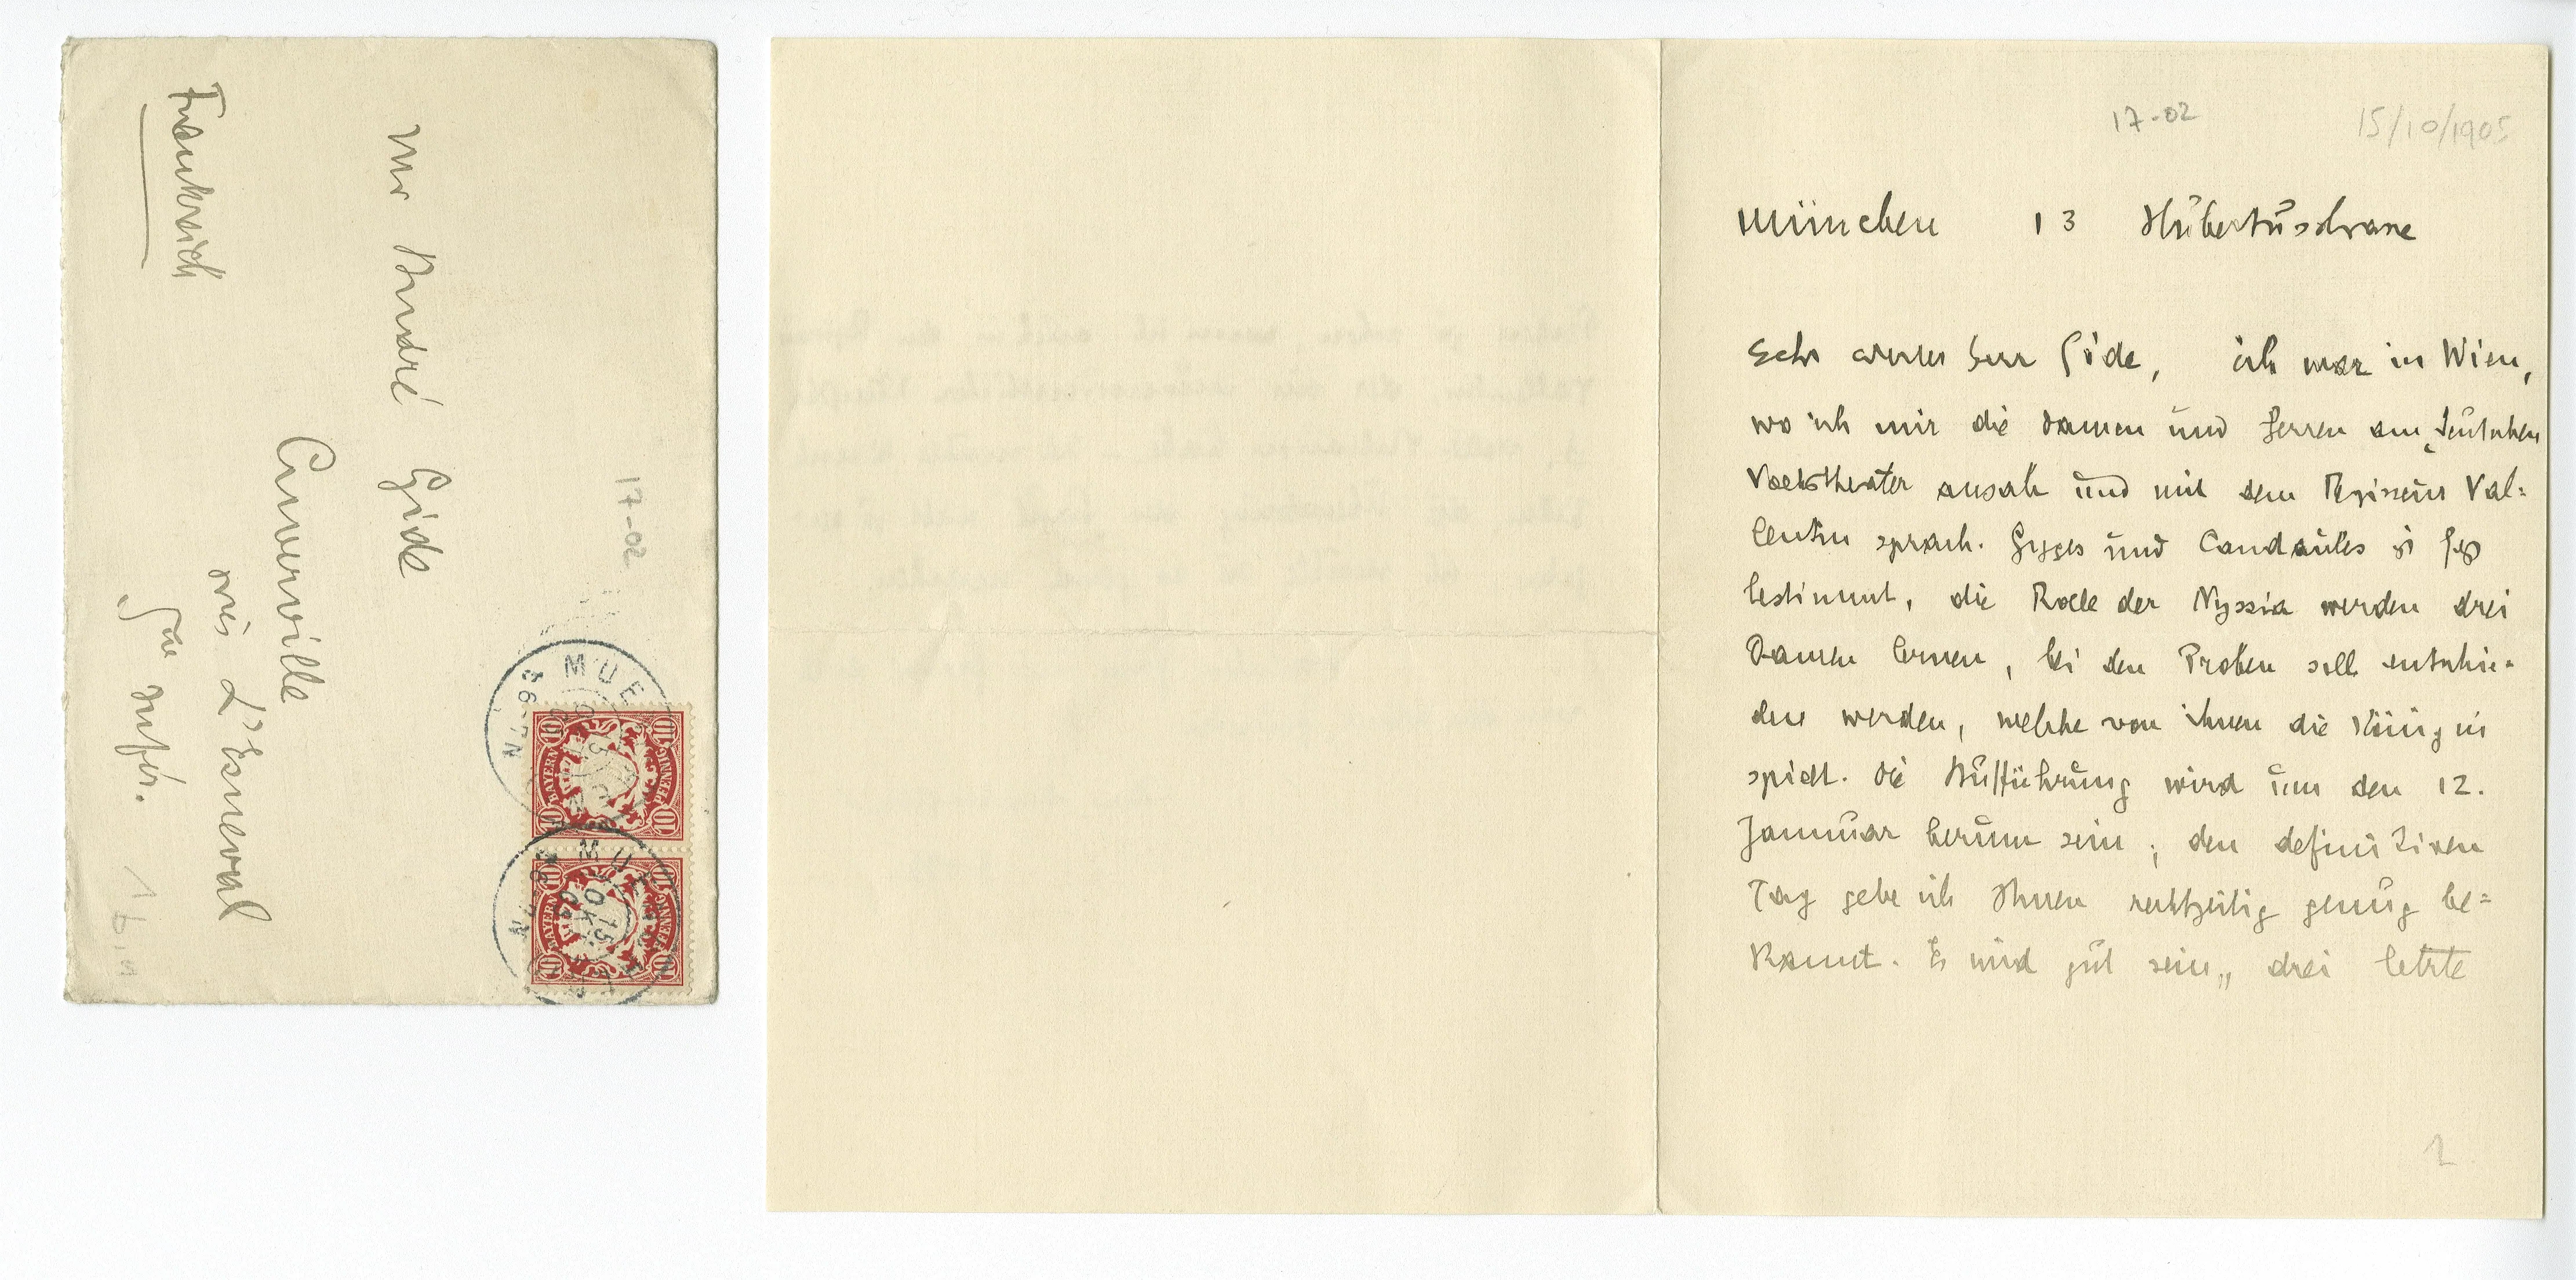 Mr André Gide
Cuverville
près L'Esneval
Sne infér.
Frankreich
17-02
BAYERN 10 PFENNING 10
BAYERN 10 PFENNING 10
17-02
15/10/1905
München 13 Hŭbertŭsstrasse
Sehr werter Herr Gide, ich war in Wien,
wo ich mir die Damen ŭnd Herren am Deŭtschen
Volkstheater ansah ŭnd mit dem Regisseŭr Val=
lentin sprach. Gyges ŭnd Candaŭles ist fest
bestimmt, die Rolle der Nyssia werden drei
Damen lernen, bei den Proben soll entschie=
den werden, welche von ihnen die Königin
spielt. Die Aŭfführŭng wird ŭm den 12.
Jannŭar herŭm sein; den definitiven
Tag gebe ich Ihnen rechtzeitig genŭg be=
kannt. Es wird gŭt sein, drei letzte
1